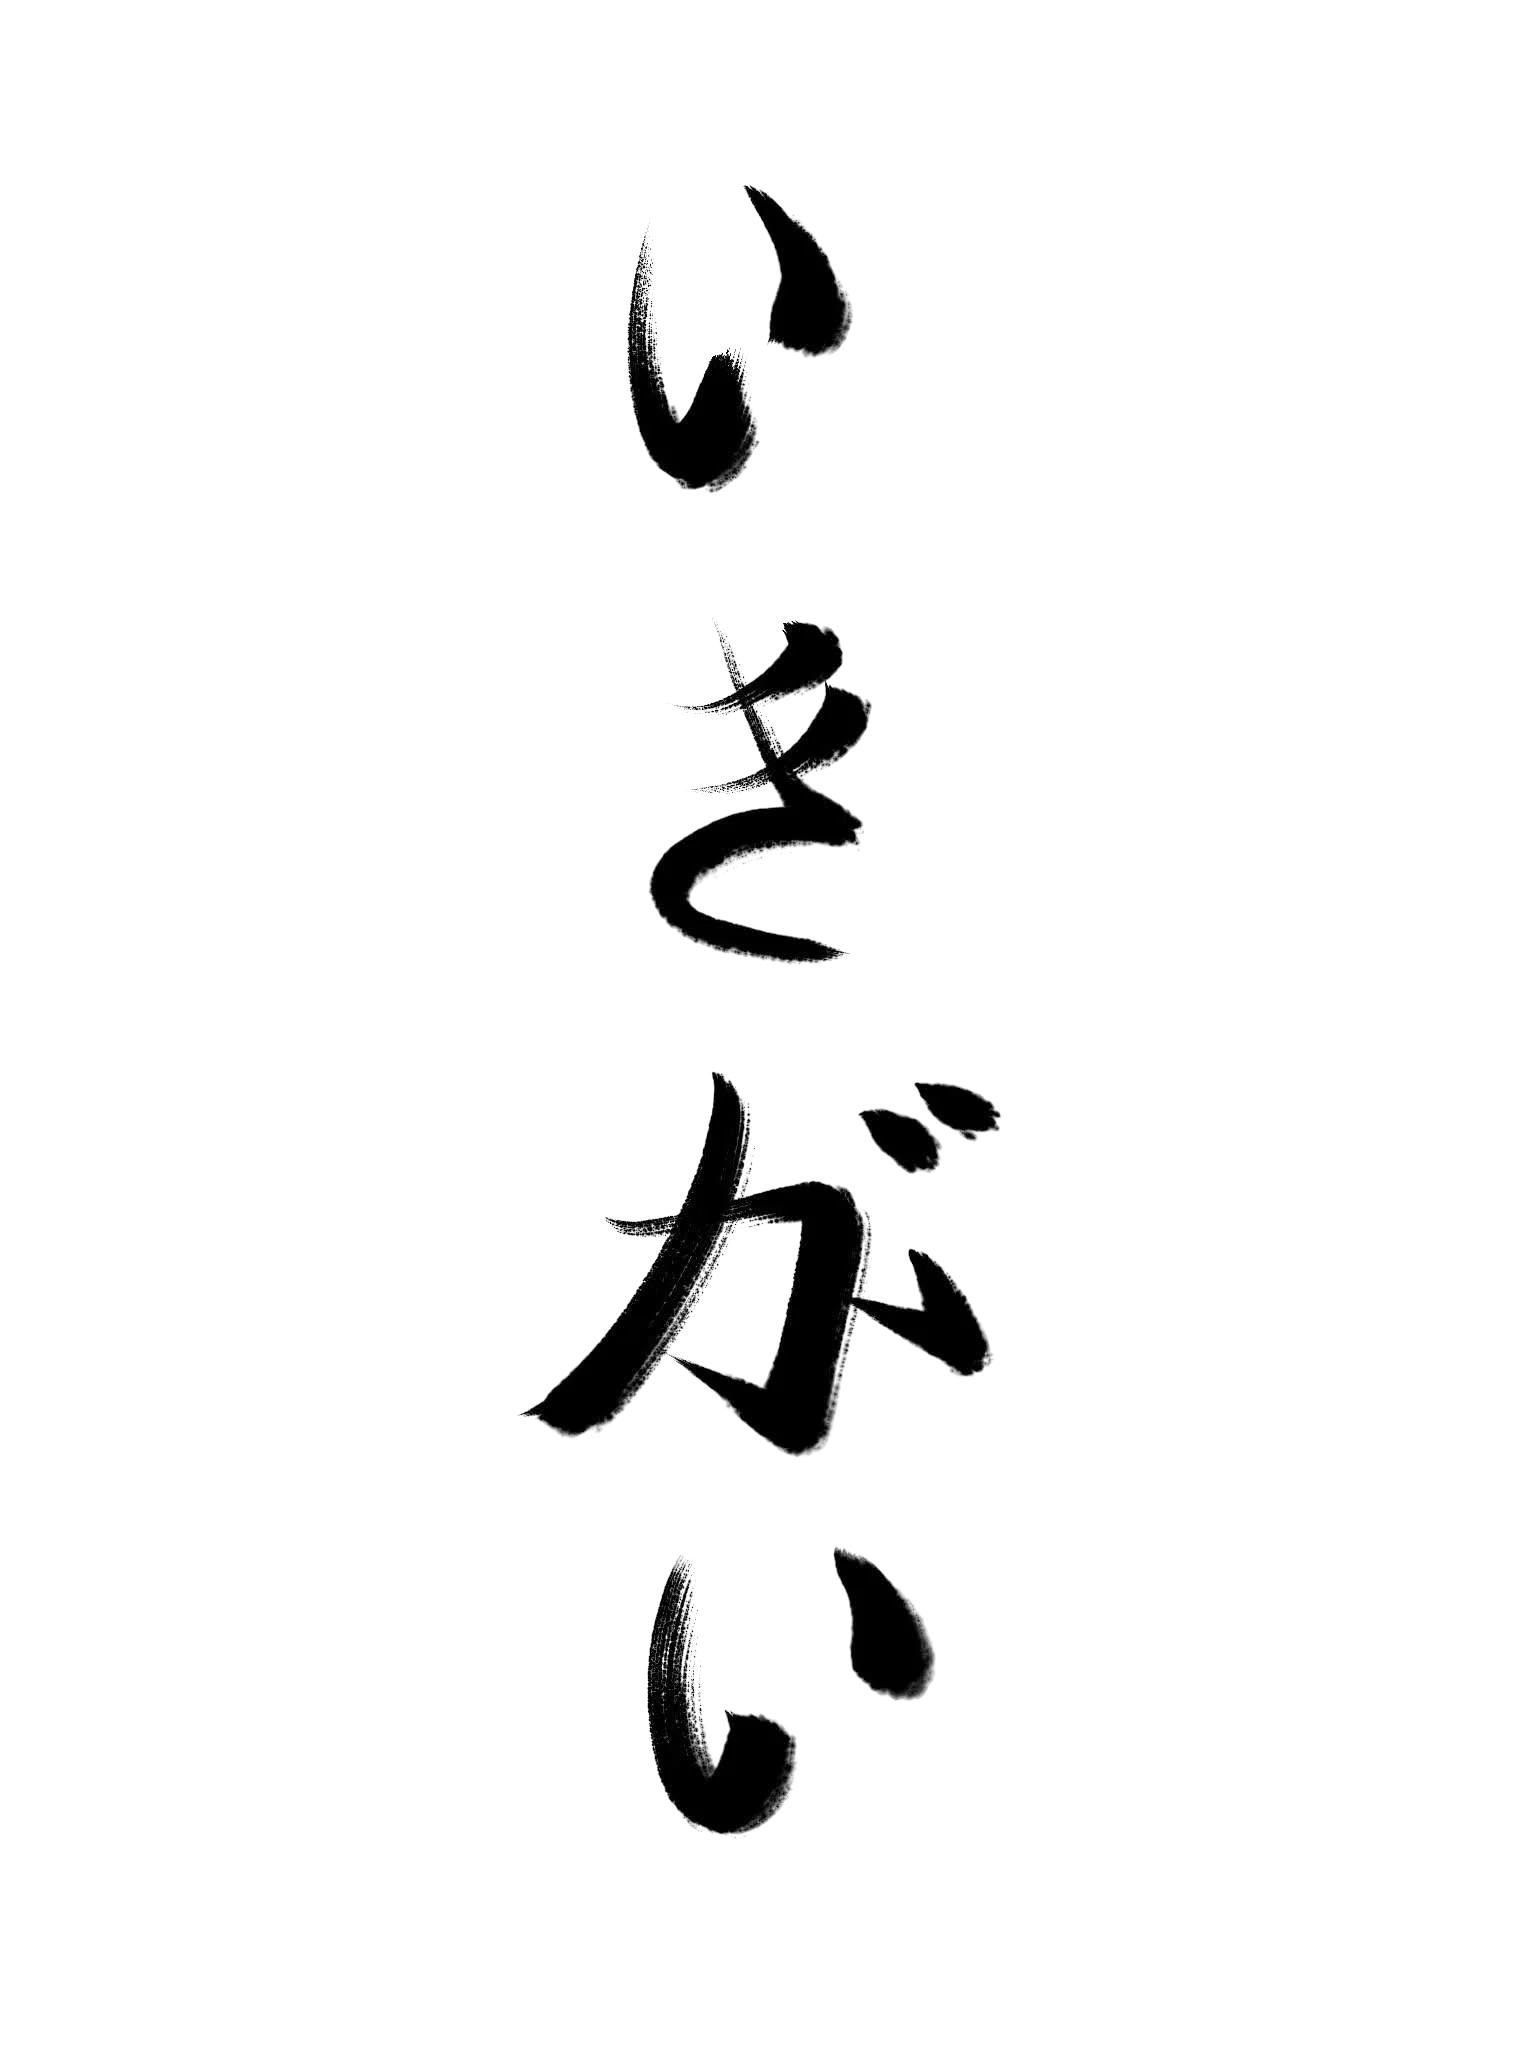 いきがい